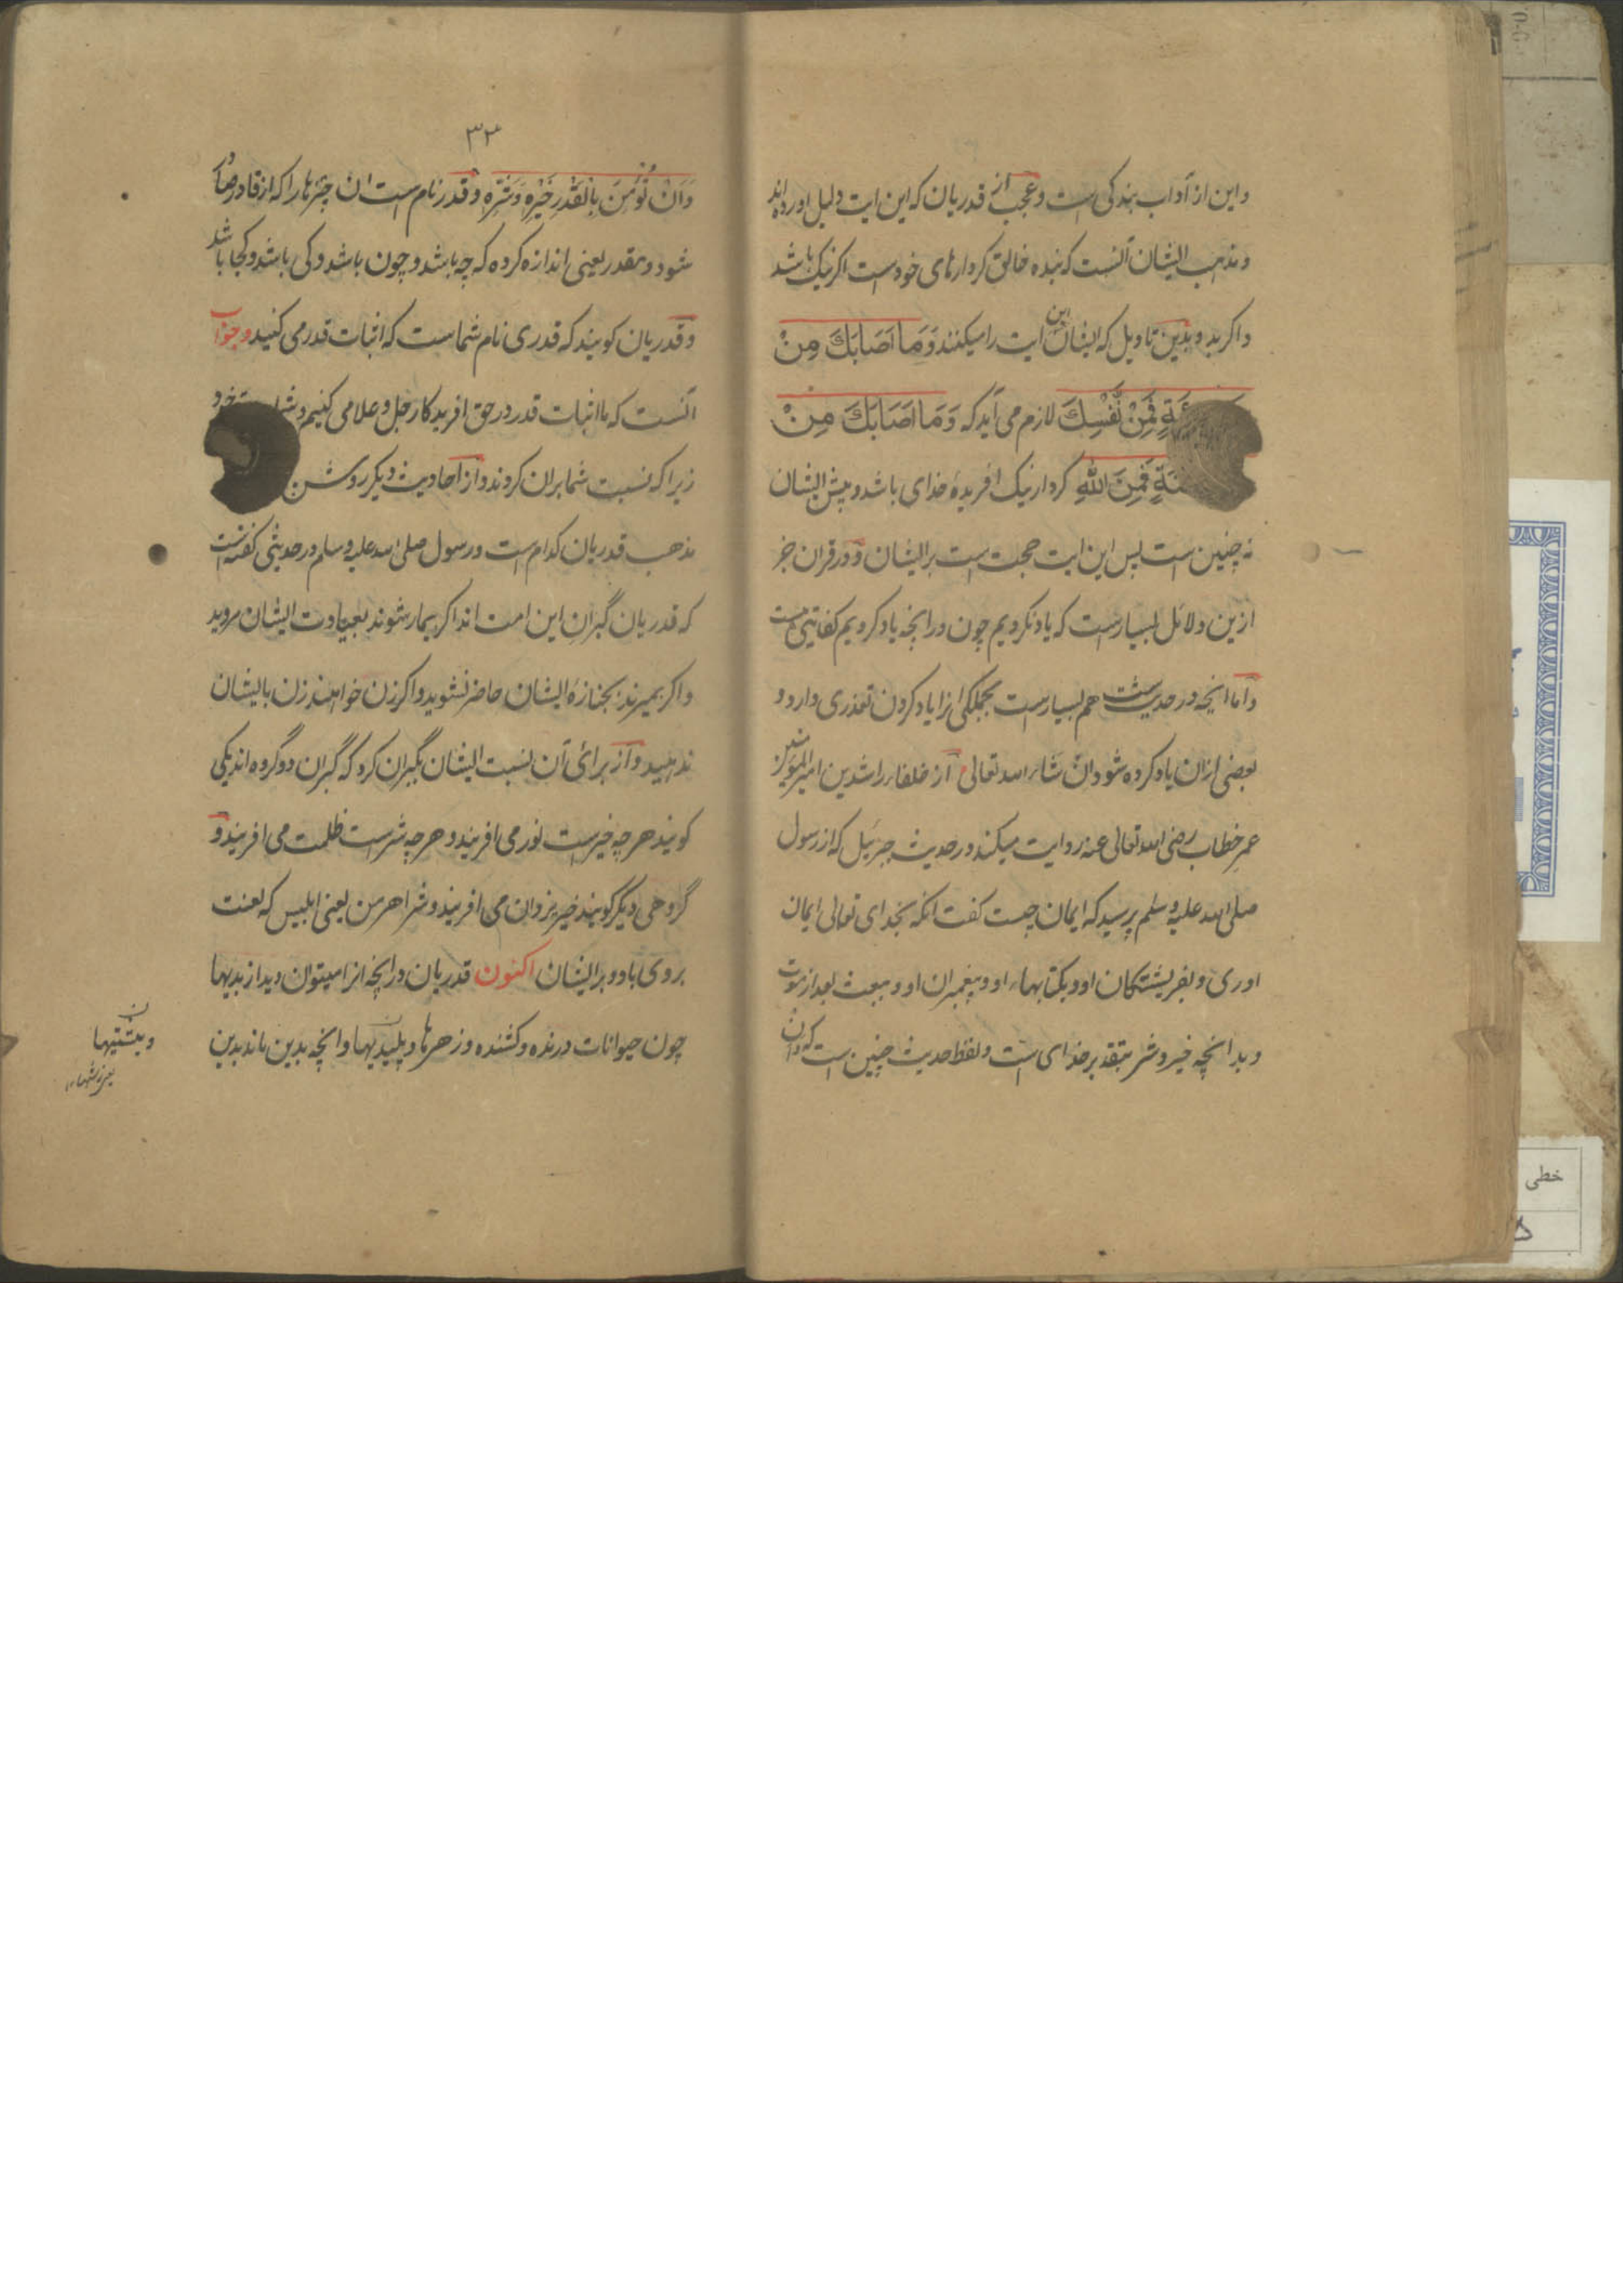 واین از آداب بندکی است وعجب از قدریان که این ایت دلیل اورده اند
ومذهب ایشان آنست که بنده خالق کردارهای خودست اکر نیک باشد
واکر بد وبدین تاویل که ایشان این ایت را میکنند وَمَا اَصَابَكَ مِنْ
فَمِنْ نَّفْسِكَ لازم می آید که وَمَا اَصَابَكَ مِنْ
فَمِنَ اللّٰهِ کردار نیک افریدۀ خدای باشد وپیش ایشان
نه چنین است پس این ایت حجت است بر ایشان ودر قران جز
ازین دلائل بسیارست که یاد نکردیم چون در انچه یاد کردیم کفایتی هست
واما انچه در حدیث است هم بسیارست بجملکی انرا یاد کردن تعذری دارد و
بعضی ازان یاد کرده شود ان شاء الله تعالی از خلفاء راشدین امیر المؤمنین
عمر خطاب رضی الله تعالی عنه روایت میکند در حدیث جبرئیل که از رسول
صلی الله علیه وسلم پرسید که ایمان چیست کفت انکه بخدای تعالی ایمان
اوری وبفریشتکان او وبکتابهاء او وپیغمبران او وببعث بعد از موت
وبدانچه خیر وشر بتقدیر خدای است ولفظ حدیث چنین است که وان
۳۳
وَاَنْ تُؤْمِنَ بِالْقَدَرِ خَیْرِهٖ وَشَرِّهٖ وقدر نام است ان چیزها را که از قادر صادر
شود ومقدر یعنی اندازه کرده که چه باشد وچون باشد وکی باشد وکجا باشد
وقدریان کویند که قدری نام شماست که اثبات قدر می کنید وجواب
آنست که ما اثبات قدر در حق افریدکار جل وعلا می کنیم خود
زیرا که نسبت شما بران کردند واز احادیث دیکر روشن
مذهب قدریان کدام است ورسول صلی الله علیه وسلم در حدیثی کفته است
که قدریان گبرانِ این امت اند اکر بیمار شوند بعیادت ایشان مروید
واکر بمیرند بجنازۀ ایشان حاضر نشوید واکر زن خواهند زن بایشان
ندهید واز برائ آن نسبت ایشان بگبران کرد که گبران دو گروه اند یکی
کویند هرچه خیرست نور می افریند وهرچه شرست ظلمت می افریند و
گروهی دیگر کویند خیر یزدان می افریند وشر اهرمن یعنی ابلیس که لعنت
بروی باد وبر ایشان اکنون قدریان در انچه انرا میتوان دید از بدیها
چون حیوانات درنده وکشنده وزهرها وپلیدیها وانچه بدین ماند بدین
خطی